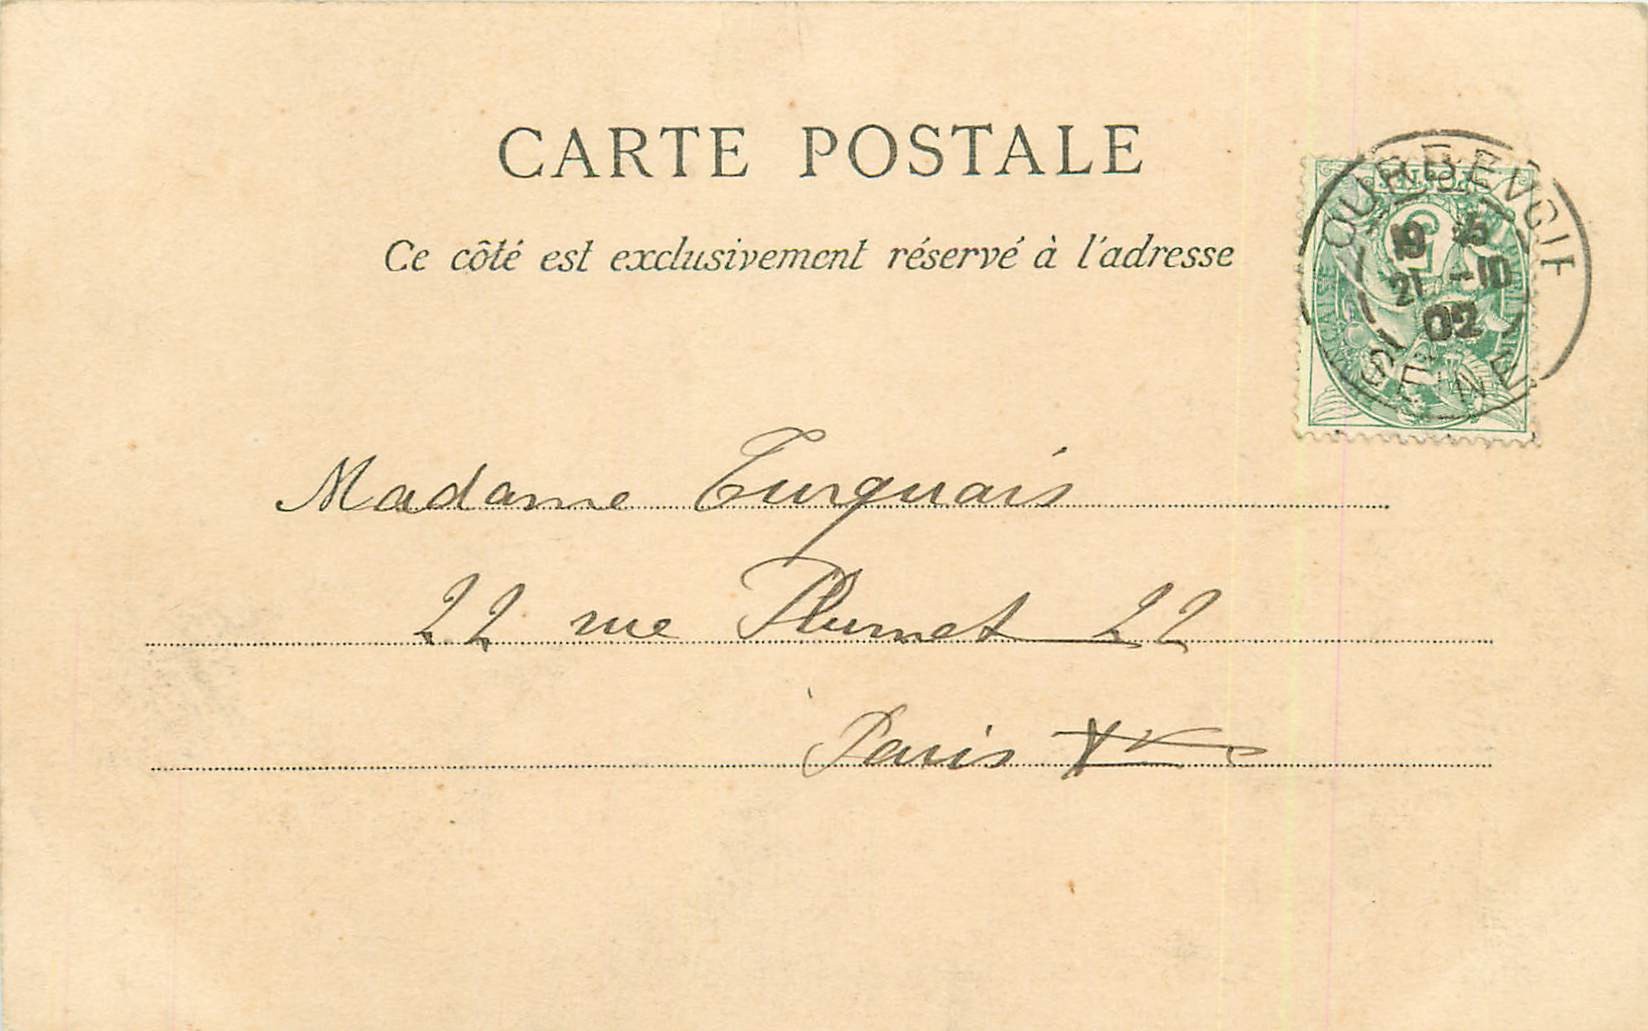 CARTE POSTALE
Ce côté est exclusivement réservé à l'adresse
COURBEVOIE
19 15
21 -10
02
SEINE
Madame Turquais
22 rue Plumet 22
Paris XVe